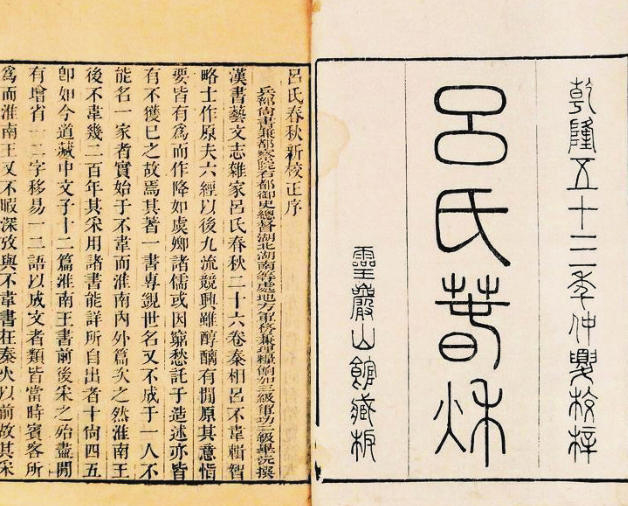 乾隆五十三年仲夏校梓
呂氏春秋
靈巖山館藏板
呂氏春秋新校正序
兵部尚書兼都察院右都御史總督湖北湖南等處地方軍務兼理糧餉加三級軍功三級畢沅撰
漢書藝文志雜家呂氏春秋二十六卷秦相呂不韋輯智
略士作原夫六經以後九流競興雖醇醨有閒原其意恉
要皆有爲而作降如虞卿諸儒或因窮愁託于造述亦皆
有不獲已之故焉其著一書專覬世名又不成于一人不
能名一家者實始于不韋而淮南內外篇次之然淮南王
後不韋幾二百年其采用諸書能詳所自出者十尙四五
卽如今道藏中文子十二篇淮南王書前後采之殆盡閒
有增省一二字移易一二語以成文者類皆當時賓客所
爲而淮南王又不暇深攷與不韋書在秦火以前故其采